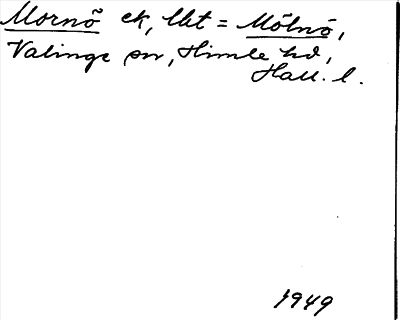 Mornö ek, lkt = Mölnö,
Valinge sn, Himle hd,
Hall. l.
1949